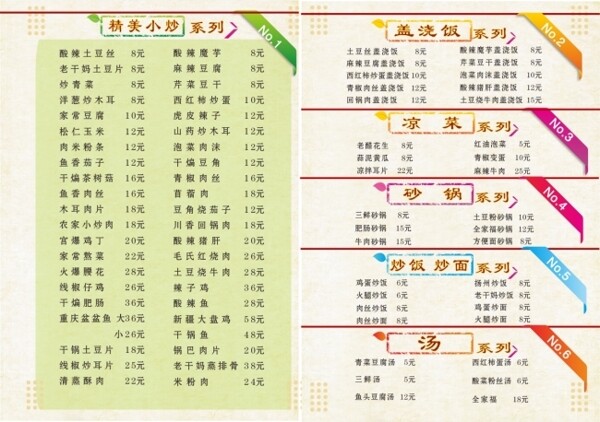 精美小炒 系列 No.1
酸辣土豆丝 8元 酸辣魔芋 8元
老干妈土豆片 8元 麻辣豆腐 8元
炒青菜 8元 芹菜豆干 8元
洋葱炒木耳 8元 西红柿炒蛋 10元
家常豆腐 10元 虎皮辣子 12元
松仁玉米 12元 山药炒木耳 12元
肉米粉条 12元 泡菜肉沫 12元
鱼香茄子 12元 干煸豆角 12元
干煸茶树菇 16元 青椒肉丝 16元
鱼香肉丝 16元 苜蓿肉 18元
木耳肉片 18元 豆角烧茄子 12元
农家小炒肉 18元 川香回锅肉 18元
宫爆鸡丁 20元 酸辣猪肝 20元
家常熬菜 22元 毛氏红烧肉 26元
火爆腰花 28元 土豆烧牛肉 28元
线椒仔鸡 26元 辣子鸡 36元
干煸肥肠 36元 酸辣鱼 28元
重庆盆盆鱼 大36元 新疆大盘鸡 58元
小26元 干锅鱼 48元
干锅土豆片 18元 锅巴肉片 20元
线椒炒耳片 25元 老干妈蒸排骨 38元
清蒸酥肉 22元 米粉肉 24元
盖浇饭 系列 No.2
土豆丝盖浇饭 8元 酸辣魔芋盖浇饭 8元
麻辣豆腐盖浇饭 8元 芹菜豆干盖浇饭 8元
西红柿炒蛋盖浇饭 10元 泡菜肉沫盖浇饭 12元
青椒肉丝盖浇饭 12元 酸辣猪肝盖浇饭 12元
回锅肉盖浇饭 12元 土豆烧牛肉盖浇饭 15元
凉菜 系列 No.3
老醋花生 8元 红油泡菜 5元
蒜泥黄瓜 8元 青椒变蛋 10元
凉拌耳片 22元 麻辣牛肉 25元
砂锅 系列 No.4
三鲜砂锅 8元 土豆粉砂锅 10元
肥肠砂锅 15元 全家福砂锅 12元
牛肉砂锅 15元 方便面砂锅 9元
炒饭 炒面 系列 No.5
鸡蛋炒饭 6元 扬州炒饭 8元
火腿炒饭 6元 老干妈炒饭 8元
肉丝炒饭 8元 鸡蛋炒面 8元
肉丝炒面 8元 火腿炒面 8元
汤 系列 No.6
青菜豆腐汤 5元 西红柿蛋汤 6元
三鲜汤 5元 酸菜粉丝汤 6元
鱼头豆腐汤 12元 全家福 18元